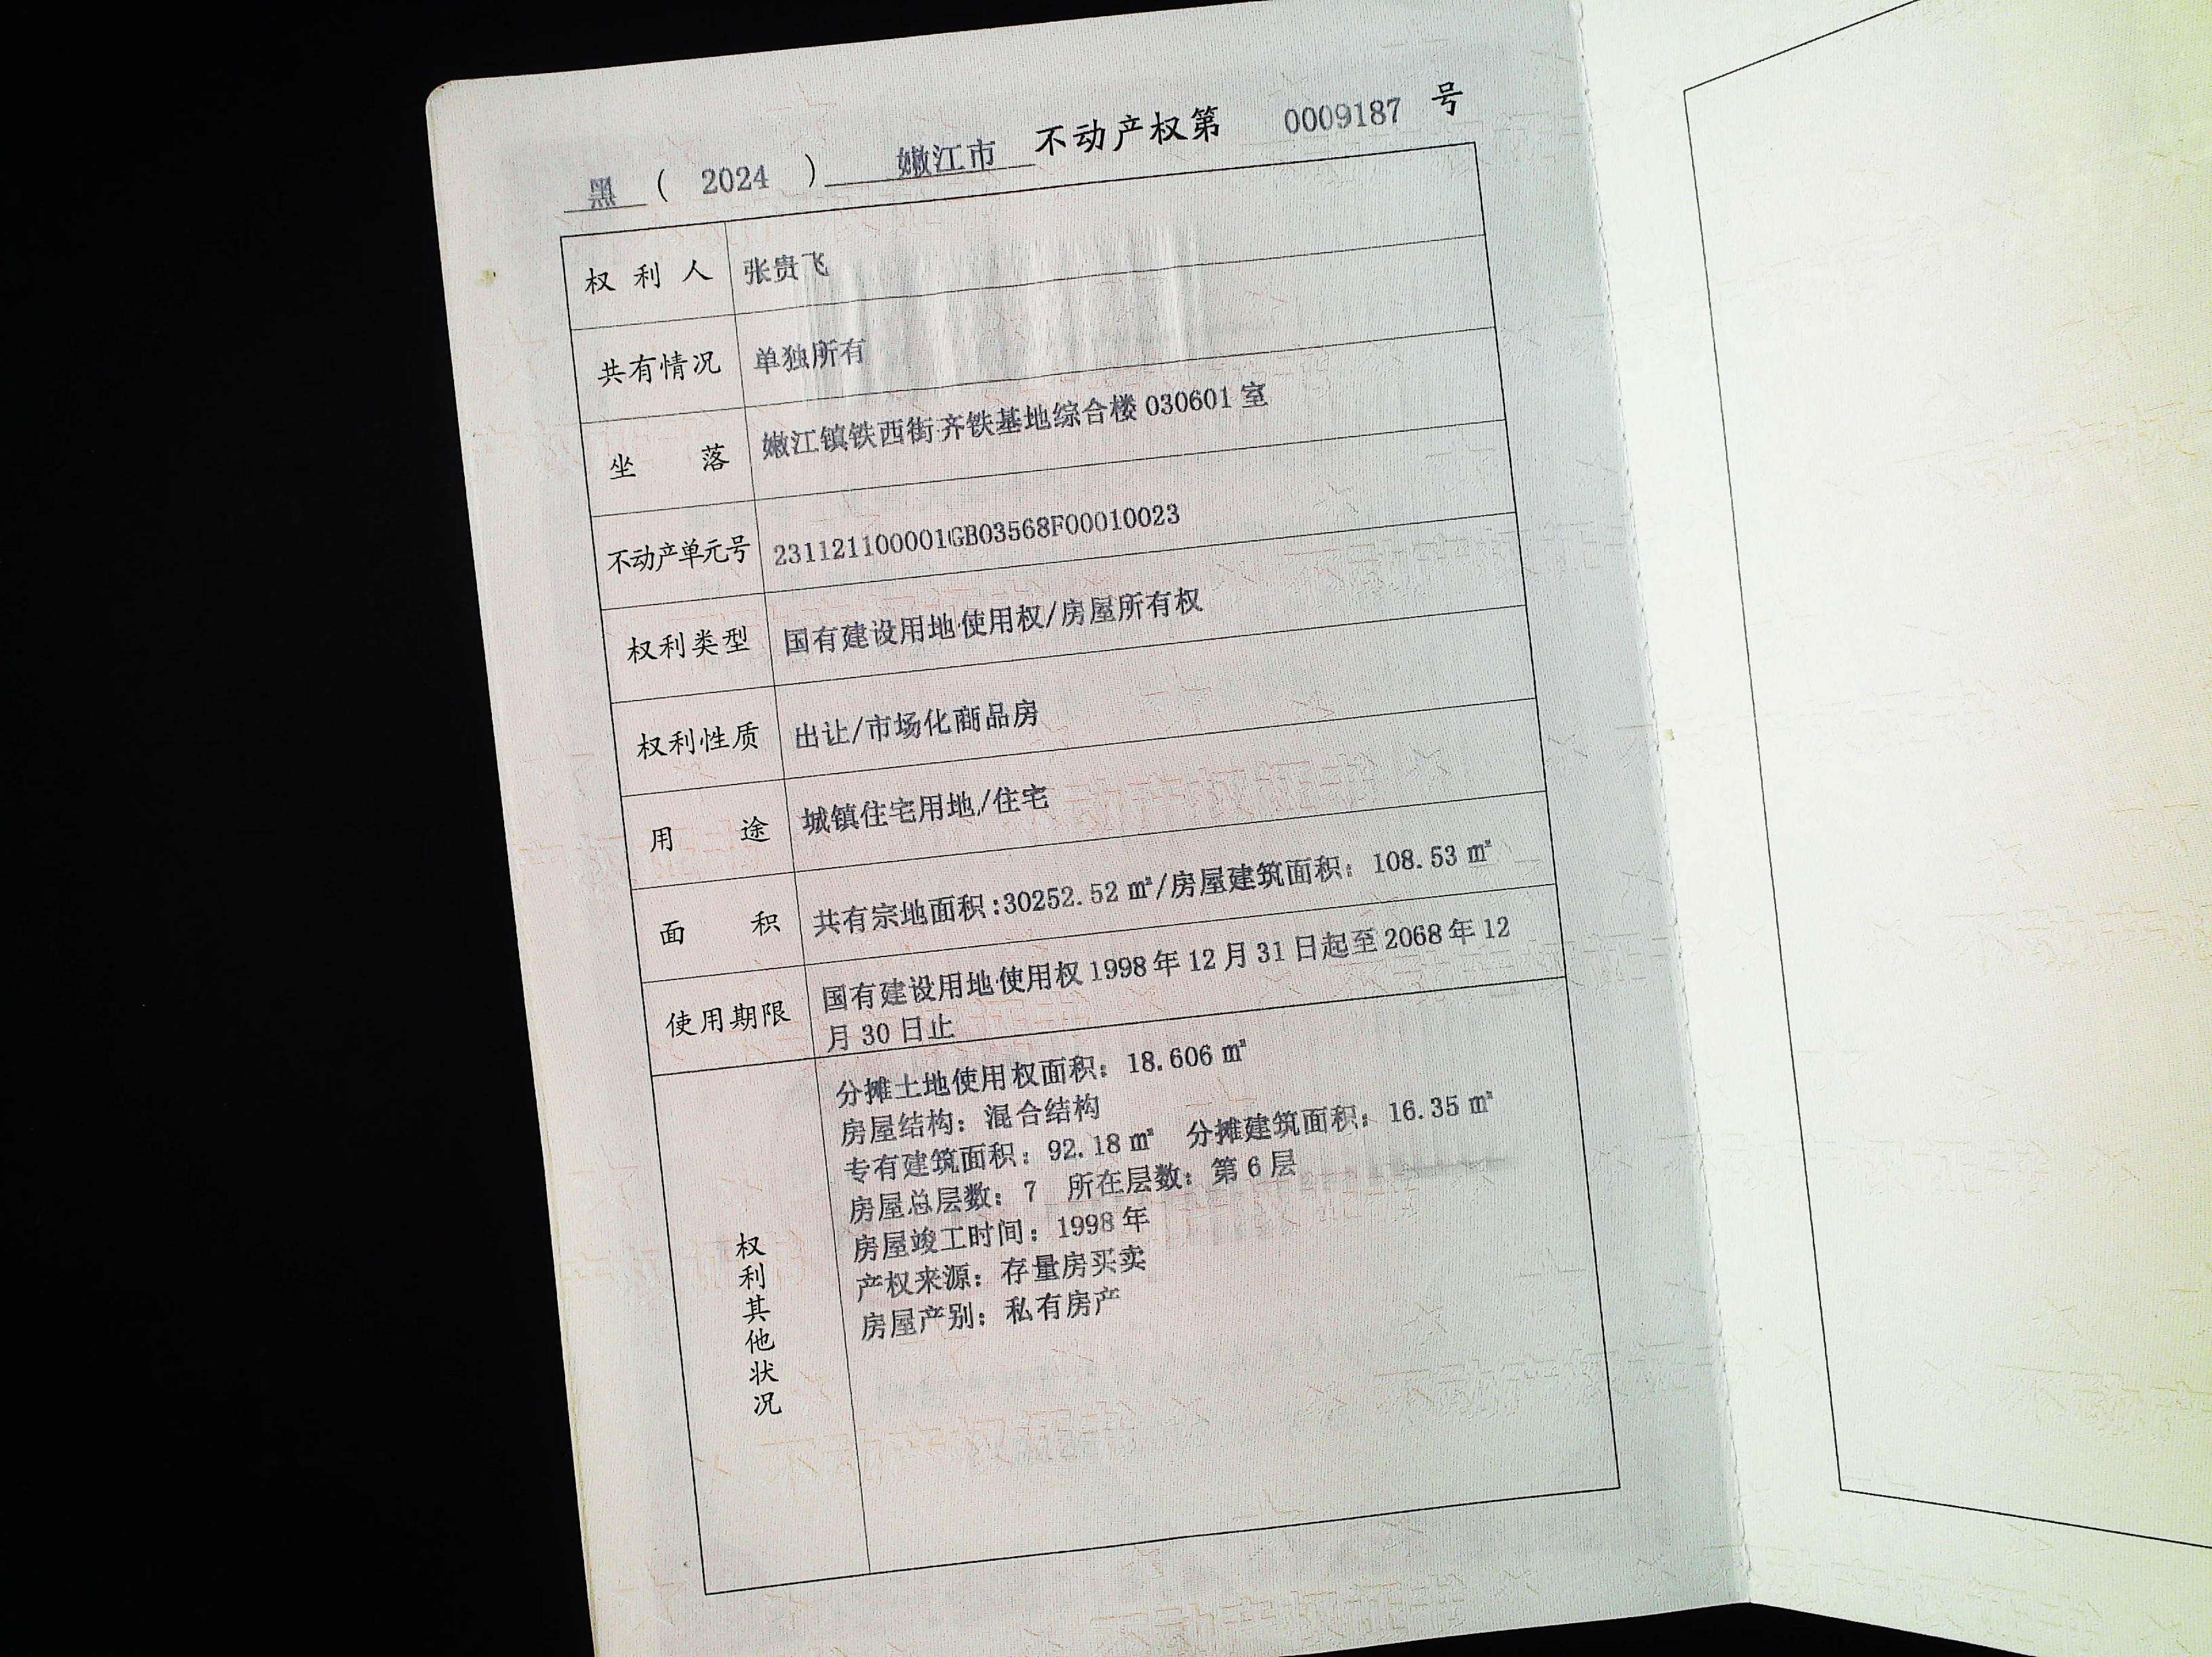 黑 ( 2024 ) 嫩江市 不动产权第 0009187 号
权利人 张贵飞
共有情况 单独所有
坐落 嫩江镇铁西街齐铁基地综合楼 030601 室
不动产单元号 231121100001GB03568F00010023
权利类型 国有建设用地使用权/房屋所有权
权利性质 出让/市场化商品房
用途 城镇住宅用地/住宅
面积 共有宗地面积:30252.52 ㎡/房屋建筑面积：108.53 ㎡
使用期限 国有建设用地使用权 1998 年 12 月 31 日起至 2068 年 12
月 30 日止
权利其他状况
分摊土地使用权面积：18.606 ㎡
房屋结构：混合结构
专有建筑面积：92.18 ㎡ 分摊建筑面积：16.35 ㎡
房屋总层数：7 所在层数：第 6 层
房屋竣工时间：1998 年
产权来源：存量房买卖
房屋产别：私有房产